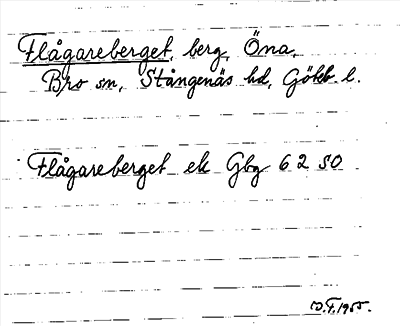 Flågareberget, berg, Öna,
Bro sn, Stångenäs hd, Götbb l.
Flågareberget ek Gbg 62 SO
1955.